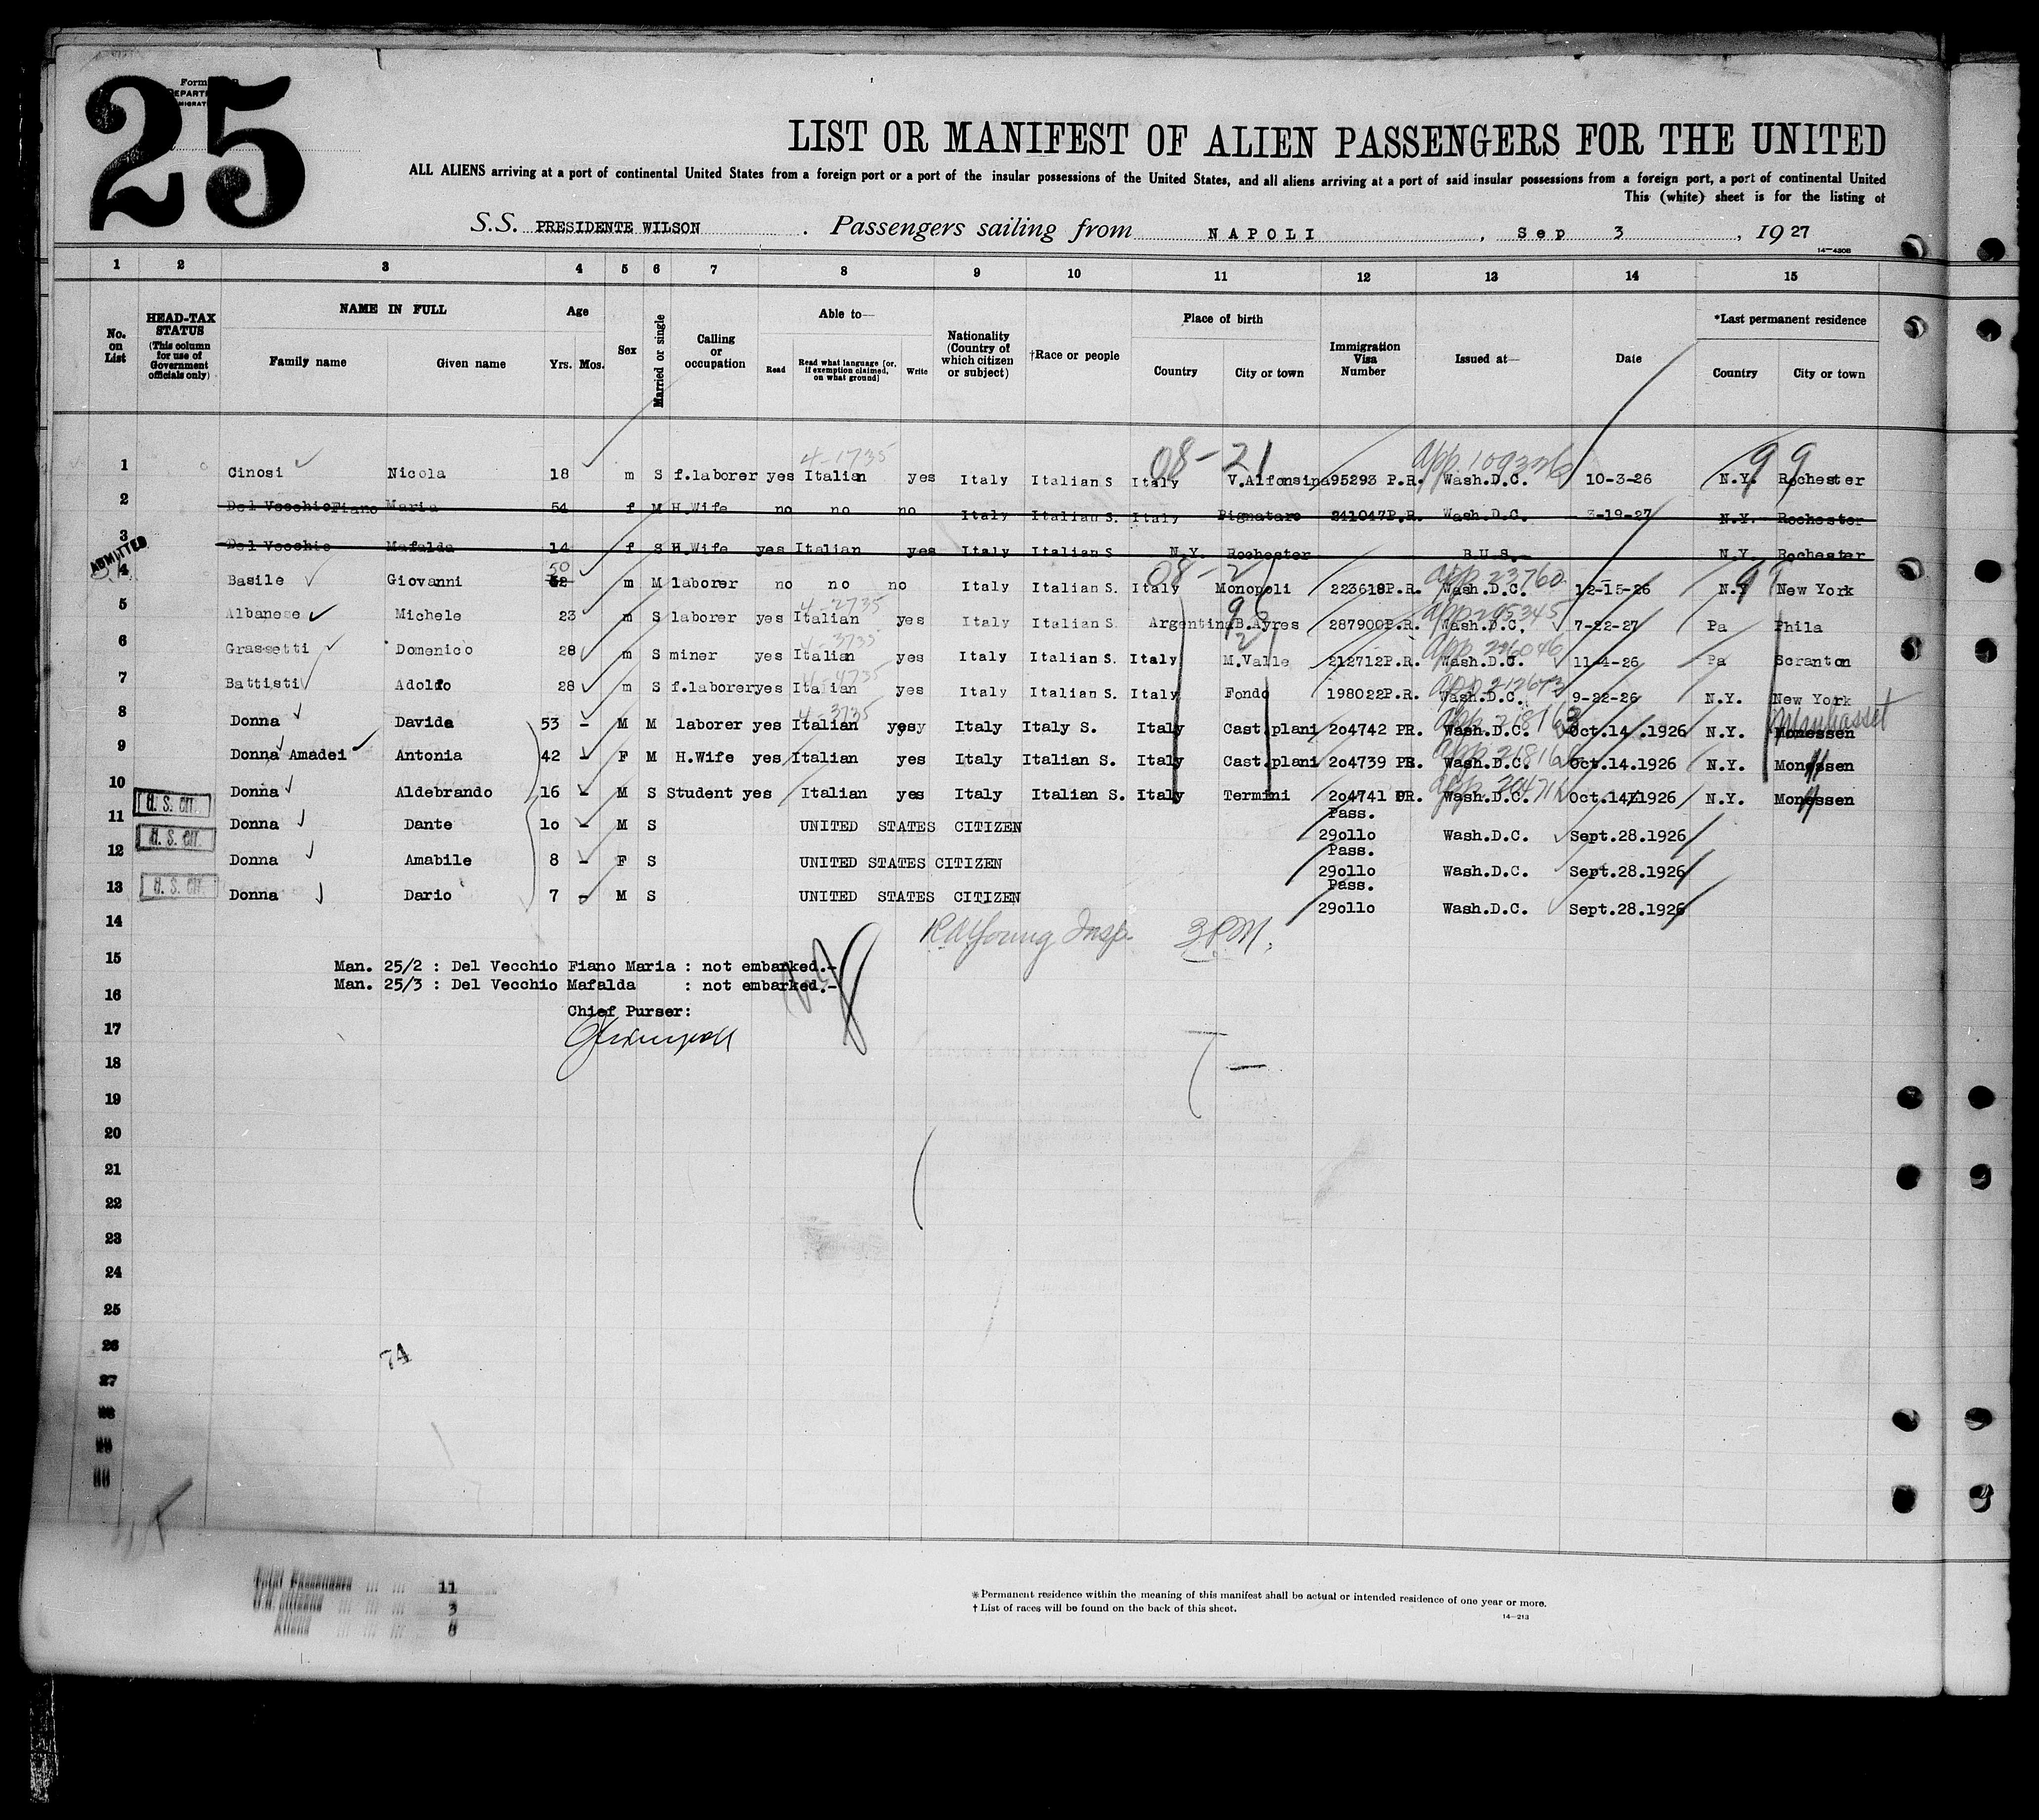 25
Form
DEPART
LIST OR MANIFEST OF ALIEN PASSENGERS FOR THE UNITED
ALL ALIENS arriving at a port of continental United States from a foreign port or a port of the insular possessions of the United States, and all aliens arriving at a port of said insular possessions from a foreign port, a port of continental United
This (white) sheet is for the listing of
S.S. PRESIDENTE WILSON . Passengers sailing from NAPOLI , Sep 3 , 19 27
14-430B
1 2 3 4 5 6 7 8 9 10 11 12 13 14 15
No. on List
HEAD-TAX STATUS (This column for use of Government officials only)
NAME IN FULL
Family name Given name
Age
Yrs. Mos.
Sex
Married or single
Calling or occupation
Able to—
Read Read what language [or, if exemption claimed, on what ground] Write
Nationality (Country of which citizen or subject)
†Race or people
Place of birth
Country City or town
Immigration Visa Number
Issued at—
Date
*Last permanent residence
Country City or town
4-1735 08-21 app. 109326 99
1 Cinosi Nicola 18 m S f.laborer yes Italian yes Italy Italian S Italy V.Alfonsina 95293 P.R. Wash.D.C. 10-3-26 N.Y. Rochester
2 Del Vecchio Fiano Maria 54 f M H.Wife no no no Italy Italian S. Italy Pignataro 341047P.R. Wash.D.C. 3-19-27 N.Y. Rochester
3 Del Vecchio Mafalda 14 f S H.Wife yes Italian yes Italy Italian S N.Y. Rochester B.U.S. N.Y. Rochester
ADMITTED
50 08-2 app 23760 99
4 Basile Giovanni m M laborer no no no Italy Italian S. Italy Monopoli 223618P.R. Wash.D.C. 12-15-26 N.Y New York
4-2735 98 app 295345
5 Albanese Michele 23 m S laborer yes Italian yes Italy Italian S. Argentina B.Ayres 287900P.R. Wash.D.C. 7-22-27 Pa Phila
4-3735 2 app 226046
6 Grassetti Domenico 28 m S miner yes Italian yes Italy Italian S. Italy M.Valle 212712P.R. Wash.D.C. 11-4-26 Pa Scranton
4-4735 app 212673
7 Battisti Adolfo 28 m S f.laborer yes Italian yes Italy Italian S. Italy Fondo 198022P.R. Wash.D.C. 9-22-26 N.Y. New York
4-3735 app 218163 Manhasset
8 Donna Davide 53 - M M laborer yes Italian yesy Italy Italy S. Italy Cast.plani 2o4742 PR. Wash.D.C. Oct.14 .1926 N.Y. Monessen
9 Donna Amadei Antonia 42 - F M H.Wife yes Italian yes Italy Italian S. Italy Cast.plani 2o4739 PR. Wash.D.C. Oct.14.1926 N.Y. Monessen
10 Donna Aldebrando 16 - M S Student yes Italian yes Italy Italian S. Italy Termini 2o4741 PR. Wash.D.C. Oct.14.1926 N.Y. Monessen
U. S. CIT.
Pass.
11 Donna Dante 1o - M S UNITED STATES CITIZEN 29ollo Wash.D.C. Sept.28.1926
U. S. CIT.
Pass.
12 Donna Amabile 8 - F S UNITED STATES CITIZEN 29ollo Wash.D.C. Sept.28.1926
U. S. CIT.
Pass.
13 Donna Dario 7 - M S UNITED STATES CITIZEN 29ollo Wash.D.C. Sept.28.1926
14 Young Insp. 3 P.M.
15 Man. 25/2 : Del Vecchio Fiano Maria : not embarked.-
Man. 25/3 : Del Vecchio Mafalda : not embarked.-
16
Chief Purser:
17
18
19
20
21
22
23
24
25
26
74
27
28
29
30
Total Passengers 11
U.S. Citizens 3
Aliens 8
* Permanent residence within the meaning of this manifest shall be actual or intended residence of one year or more.
† List of races will be found on the back of this sheet.
14-213